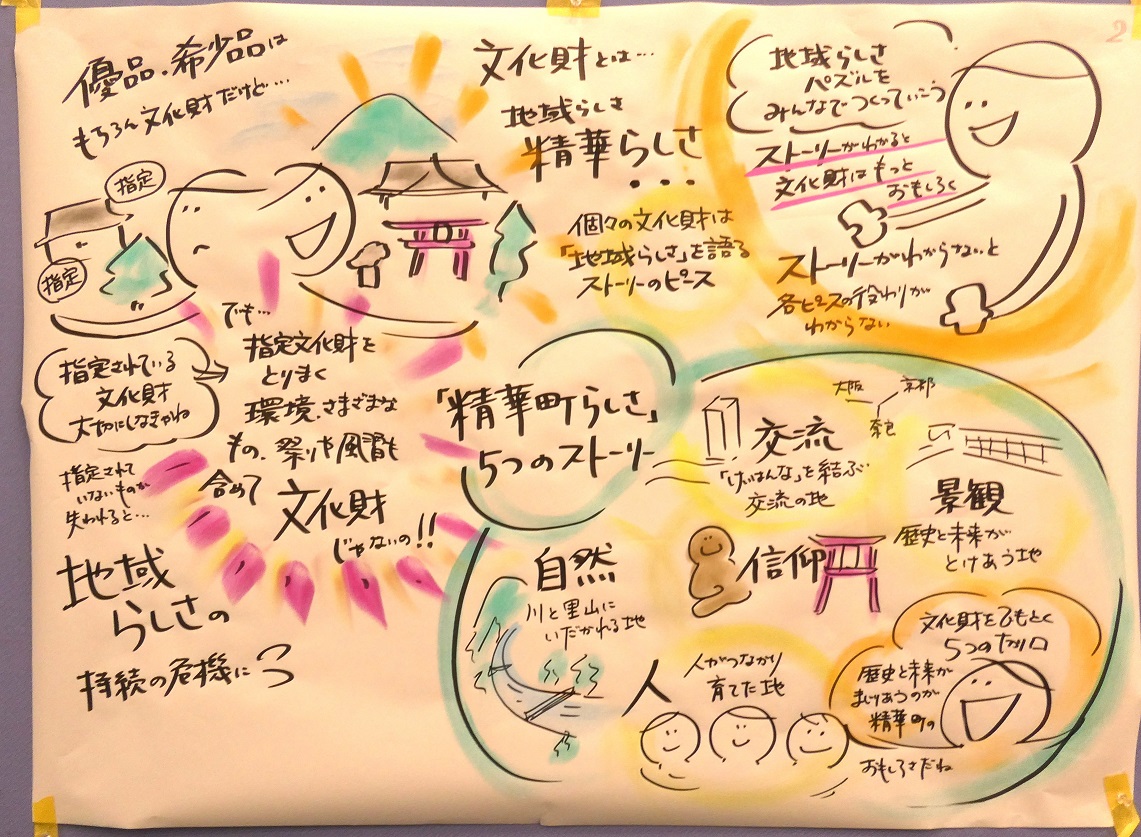 2
優品・希少品は
もちろん文化財だけど…
指定
指定
文化財とは…
地域らしさ
精華らしさ
・・・
個々の文化財は
「地域らしさ」を語る
ストーリーのピース
地域らしさ
パズルを
みんなでつくっていこう
ストーリーがわかると
文化財はもっと
おもしろく
ストーリーがわからないと
各ピースの役わりが
わからない
指定されている
文化財
大切にしなきゃね
でも…
指定文化財を
とりまく
環境、さまざまな
もの、祭りや風習も
含めて
文化財
じゃないの!!
指定されて
いないものが
失われると…
地域
らしさの
持続の危機に
「精華町らしさ」
5つのストーリー
交流
「けいはんな」を結ぶ
交流の地
大阪
京都
奈良
景観
歴史と未来が
とけあう地
自然
川と里山に
いだかれる地
信仰
人
人がつながり
育てた地
文化財をひもとく
5つの切り口
歴史と未来が
まじりあうのが
精華町の
おもしろさだね